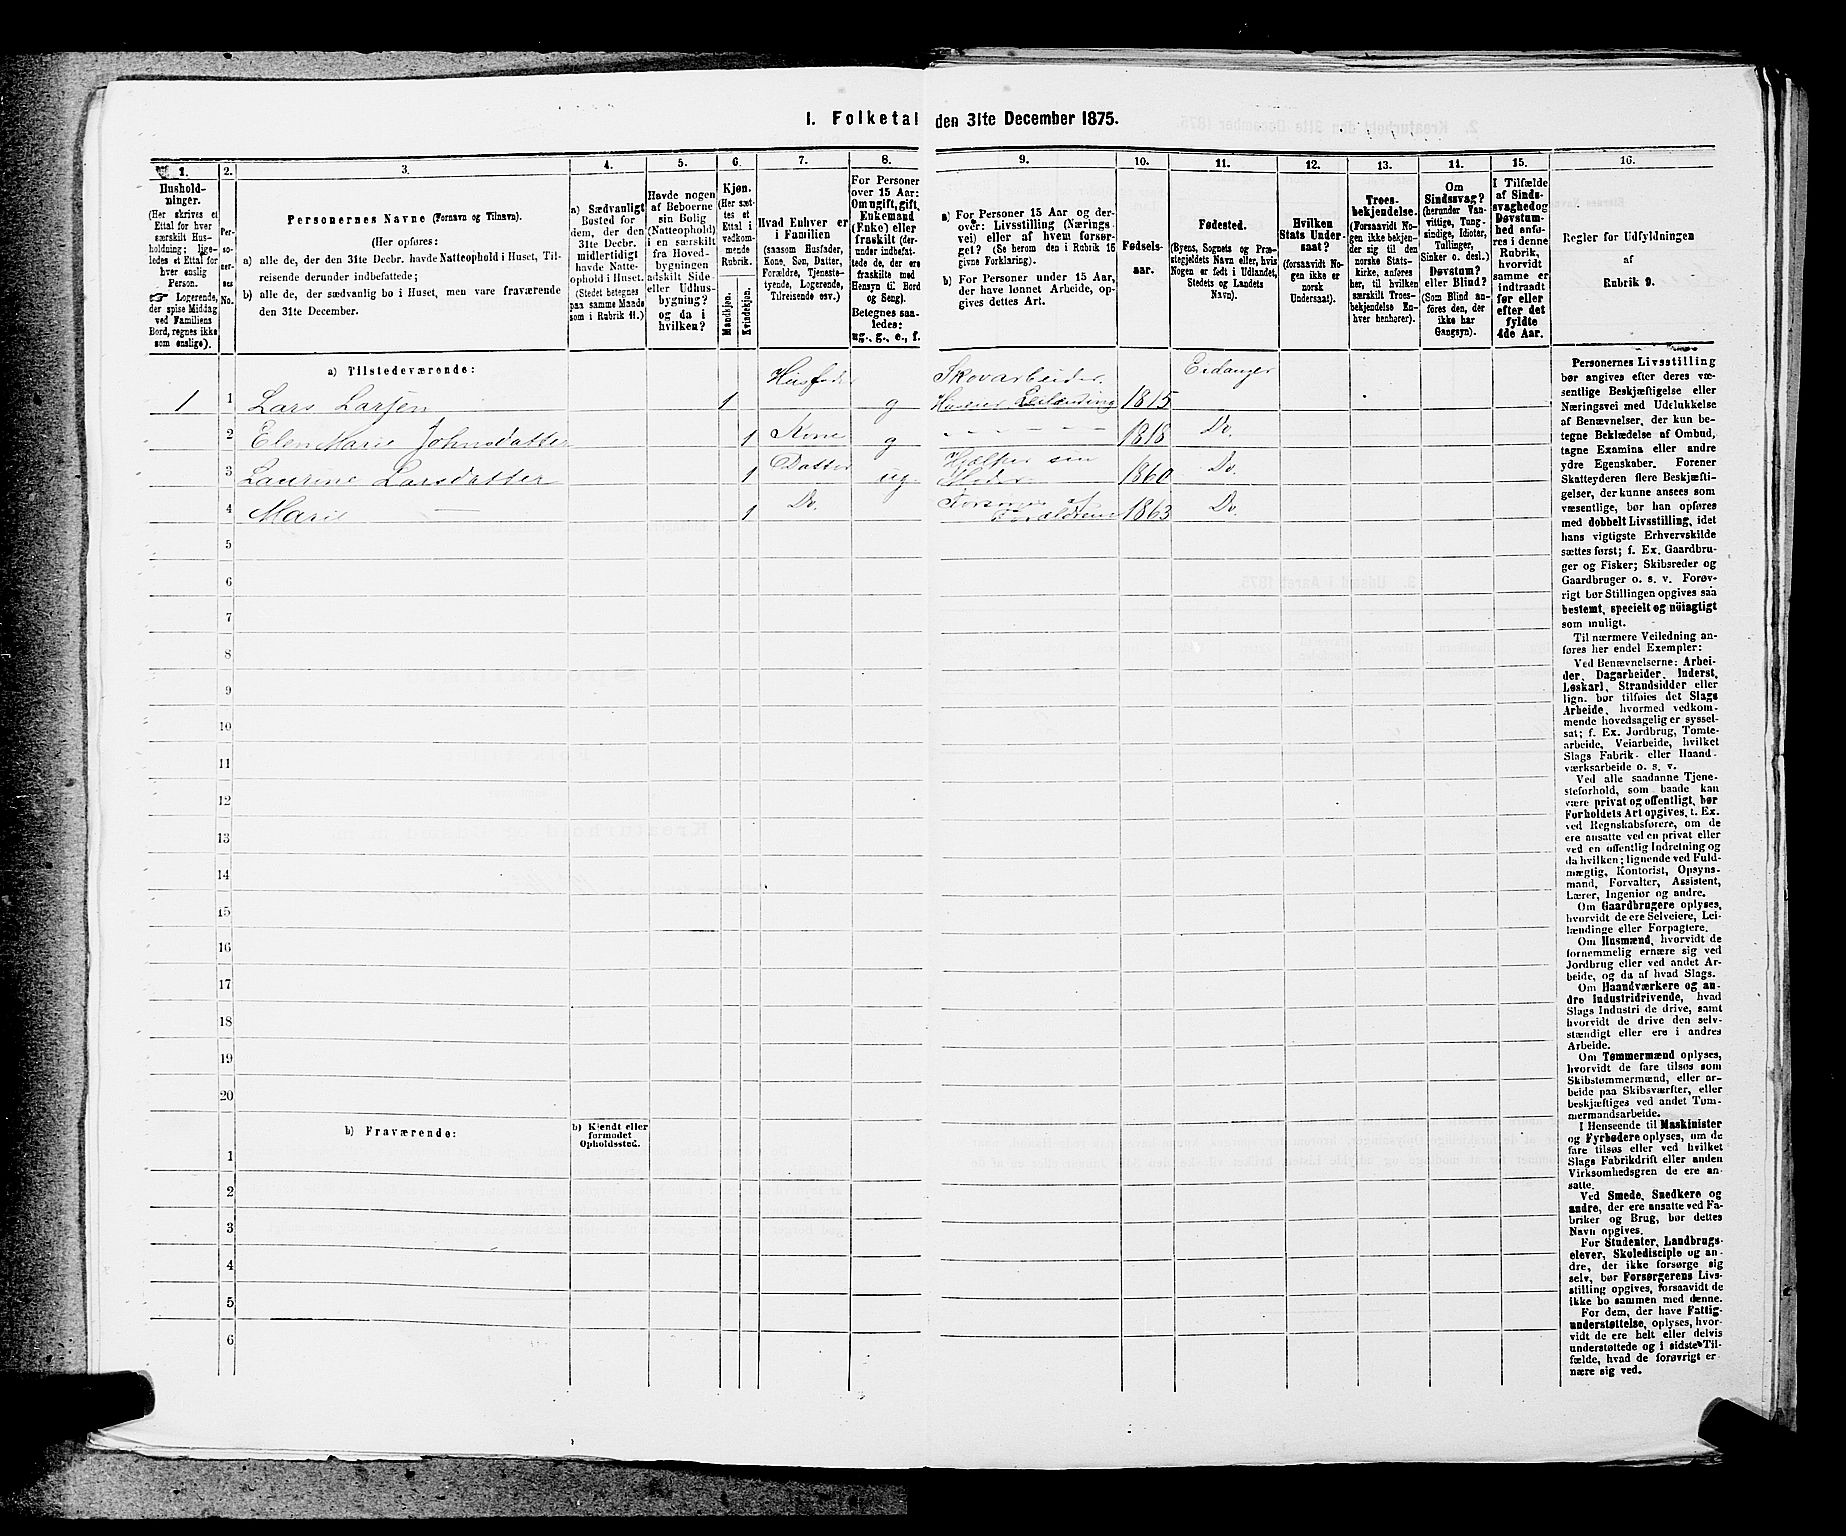 1. Folketal den 31te December 1875.
1.
Hushold-
ninger.
(Her skrives et
Ettal for hver
særskilt Hus-
holdning; lige-
ledes et Ettal for
hver enslig
Person.
☞ Logerende,
der spise Middag
ved Familiens
Bord, regnes ikke
som enslige).
2.
Per-
so-
ner-
nes
No.
3.
Personernes Navne (Fornavn og Tilnavn).
(Her opføres:
a) alle de, der den 31te Decbr. havde Natteophold i Huset, Til-
reisende derunder indbefattede;
b) alle de, der sædvanlig bo i Huset, men vare fraværende
den 31te December.
4.
a) Sædvanligt
Bosted for
dem, der den
31te Decbr.
midlertidigt
havde Natte-
ophold i Huset.
(Stedet betegnes
paa samme Maade
som i Rubrik 11.)
5.
Havde nogen
af Beboerne
sin Bolig
(Natteophold)
i en særskilt
fra Hoved-
bygningen
adskilt Side-
eller Udhus-
bygning?
og da i
hvilken?
6.
Kjøn.
(Her sæt-
tes et
Ettal i
vedkom-
mende
Rubrik.
Mandkjøn.
Kvindekjøn.
7.
Hvad Enhver er
i Familien
(saasom Husfader,
Kone, Søn, Datter,
Forældre, Tjeneste-
tyende, Logerende,
Tilreisende osv.)
8.
For Personer
over 15 Aar:
Om ugift, gift,
Enkemand
(Enke) eller
fraskilt (der-
under indbefat-
tede de, der ere
fraskilte med
Hensyn til Bord
og Seng).
Betegnes saa-
ledes:
ug., g., e., f.
9.
a) For Personer 15 Aar og der-
over: Livsstilling (Nærings-
vei) eller af hvem forsør-
get? (Se herom den i Rubrik 16
givne Forklaring).
b) For Personer under 15 Aar,
der have lønnet Arbeide, op-
gives dettes Art.
10.
Fødsels-
aar.
11.
Fødested.
(Byens, Sognets og Præ-
stegjeldets Navn eller, hvis
Nogen er født i Udlandet,
Stedets og Landets
Navn).
12.
Hvilken
Stats Under-
saat?
(forsaavidt No-
gen ikke er
norsk
Undersaat).
13.
Troes-
bekjendelse.
(Forsaavidt No-
gen ikke bekjen-
der sig til den
norske Stats-
kirke, anføres
her, til hvilken
særskilt Troes-
bekjendelse En-
hver henhører).
14.
Om
Sindssvag?
(herunder Van-
vittige, Tung-
sindige, Idioter,
Tullinger,
Sinker o. desl.)
Døvstum?
eller Blind?
(Som Blind an-
føres den, der
ikke har
Gangsyn).
15.
I Tilfælde
af Sinds-
svaghed og
Døvstum-
hed anfø-
res i denne
Rubrik,
hvorvidt
samme er
indtraadt
før eller
efter det
fyldte
4de Aar.
16.
Regler for Udfyldningen
af
Rubrik 9.
a) Tilstedeværende:
1 1 Lars Larsen 1 Husfader g Skovarbeider. Leilænding 1815 Eidanger
2 Elen Marie Johnsdatter 1 Kone g - - - - - 1818 Do.
3 Laurine Larsdatter 1 Datter ug. Hjælper sin Moder 1860 Do.
4 Marie — 1 Do. Forsørges af Forældrene 1863 Do.
5
6
7
8
9
10
11
12
13
14
15
16
17
18
19
20
b) Fraværende:
b) Kjendt eller
formodet
Opholdssted.
1
2
3
4
5
6
Personernes Livsstilling
bør angives efter deres væ-
sentlige Beskjæftigelse eller
Næringsvei med Udelukkelse
af Benævnelser, der kun be-
tegne Beklædelse af Ombud,
tagne Examina eller andre
ydre Egenskaber. Forener
Skatteyderen flere Beskjæfti-
gelser, der kunne ansees som
væsentlige, bør han opføres
med dobbelt Livsstilling, idet
hans vigtigste Erhvervskilde
sættes først; f. Ex. Gaardbru-
ger og Fisker; Skibsreder og
Gaardbruger o. s. v. Forøv-
rigt bør Stillingen opgives saa
bestemt, specielt og nöiagtigt
som muligt.
Til nærmere Veiledning an-
føres her endel Exempler:
Ved Benævnelserne: Arbei-
der, Dagarbeider, Inderst,
Løskarl, Strandsidder eller
lign. bør tilføies det Slags
Arbeide, hvormed vedkom-
mende hovedsagelig er syssel-
sat; f. Ex. Jordbrug, Tomte-
arbeide, Veiarbeide, hvilket
Slags Fabrik- eller Haand-
værksarbeide o. s. v.
Ved alle saadanne Tjene-
steforhold, som baade kan
være privat og offentligt, bør
Forholdets Art opgives, t. Ex.
ved Regnskabsførere, om de
ere ansatte ved en privat eller
ved en offentlig Indretning og
da hvilken; lignende ved Fuld-
mægtig, Kontorist, Opsyns-
mand, Forvalter, Assistent,
Lærer, Ingeniør og andre.
Om Gaardbrugere oplyses,
hvorvidt de ere Selveiere, Lei-
lændinge eller Forpagtere.
Om Husmænd, hvorvidt de
fornemmelig ernære sig ved
Jordbrug eller ved andet Ar-
beide, og da af hvad Slags.
Om Haandværkere og an-
dre Industridrivende, hvad
Slags Industri de drive, samt
hvorvidt de drive den selv-
stændigt eller ere i andres
Arbeide.
Om Tømmermænd oplyses,
hvorvidt de fare tilsøs som
Skibstømmermænd, eller ar-
beide paa Skibsværfter, eller
beskjæftiges ved andet Tøm-
mermandsarbeide.
I Henseende til Maskinister
og Fyrbødere oplyses, om de
fare tilsøs eller ved hvilket
Slags Fabrikdrift eller anden
Virksomhedsgren de ere an-
satte.
Ved Smede, Snedkere og
andre, der ere ansatte ved Fa-
briker og Brug, bør dettes
Navn opgives.
For Studenter, Landbrugs-
elever, Skoledisciple og an-
dre, der ikke forsørge sig
selv, bør Forsørgerens Livs-
stilling opgives, forsaavidt de
ikke bo sammen med denne.
For dem, der have Fattig-
understøttelse, oplyses, hvor-
vidt de ere helt eller delvis
understøttede og i sidste Til-
fælde, hvad de forøvrigt er-
nære sig ved.